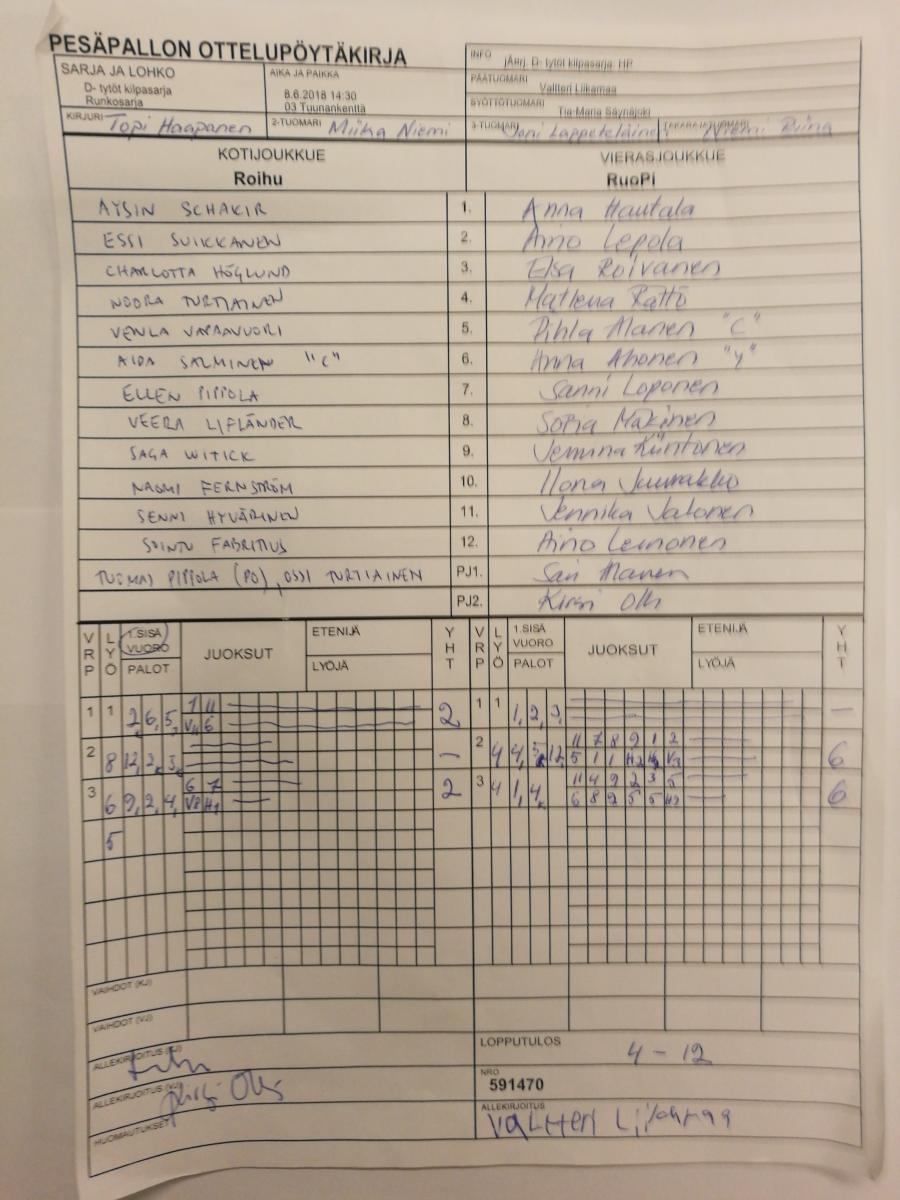 PESÄPALLON OTTELUPÖYTÄKIRJA
INFO jÄrj. D- tytöt kilpasarja. HP
SARJA JA LOHKO
D- tytöt kilpasarja
Runkosarja
AIKA JA PAIKKA
8.6.2018 14:30
03 Tuunankenttä
PÄÄTUOMARI Valtteri Liikamaa
SYÖTTÖTUOMARI Tiia-Maria Säynäjoki
KIRJURI Topi Haapanen
2-TUOMARI Miika Niemi
3-TUOMARI Joni Lappeteläinen
TAKARAJATUOMARI Niemi Riina
KOTIJOUKKUE
Roihu
VIERASJOUKKUE
RuoPi
AYSIN SCHAKIR 1. Anna Hautala
ESSI SUIKKANEN 2. Aino Lepola
CHARLOTTA HÖGLUND 3. Elsa Roivanen
NOORA TURTIAINEN 4. Matleena Rättö
VENLA VAPAAVUORI 5. Pihla Alanen "C"
AIDA SALMINEN "C" 6. Anna Ahonen "Y"
ELLEN PIPPOLA 7. Sanni Loponen
VEERA LIFLÄNDER 8. Sofia Mäkinen
SAGA WITICK 9. Jemina Kiintonen
NAOMI FERNSTRÖM 10. Ilona Juurakko
SENNI HYVÄRINEN 11. Jennika Jalonen
SOINTU FABRITIUS 12. Aino Leinonen
TUOMAS PIPPOLA (PO), OSSI TURTIAINEN PJ1. Sari Alanen
PJ2. Kirsi Olli
VRP LYÖ 1.SISÄ VUORO PALOT JUOKSUT ETENIJÄ LYÖJÄ YHT VRP LYÖ 1.SISÄ VUORO PALOT JUOKSUT ETENIJÄ LYÖJÄ YHT
1 1 2, 6, 5, 1 11 2 1 1 1, 2, 3, –
V4 6
2 8 12, 2, 3, – 2 4 4, 5, 12, 11 7 8 9 1 2 6
5 1 1 H2 V3
3 6 9, 2, 4, 6 7 2 3 4 1, 4, 11 4 9 2 3 5 6
V8 H1 6 8 9 5 5 H2
5
VAIHDOT (KJ)
VAIHDOT (VJ)
ALLEKIRJOITUS (KJ)
LOPPUTULOS 4 – 12
ALLEKIRJOITUS (VJ) Kirsi Olli
NRO
591470
HUOMAUTUKSET
ALLEKIRJOITUS Valtteri Liikamaa